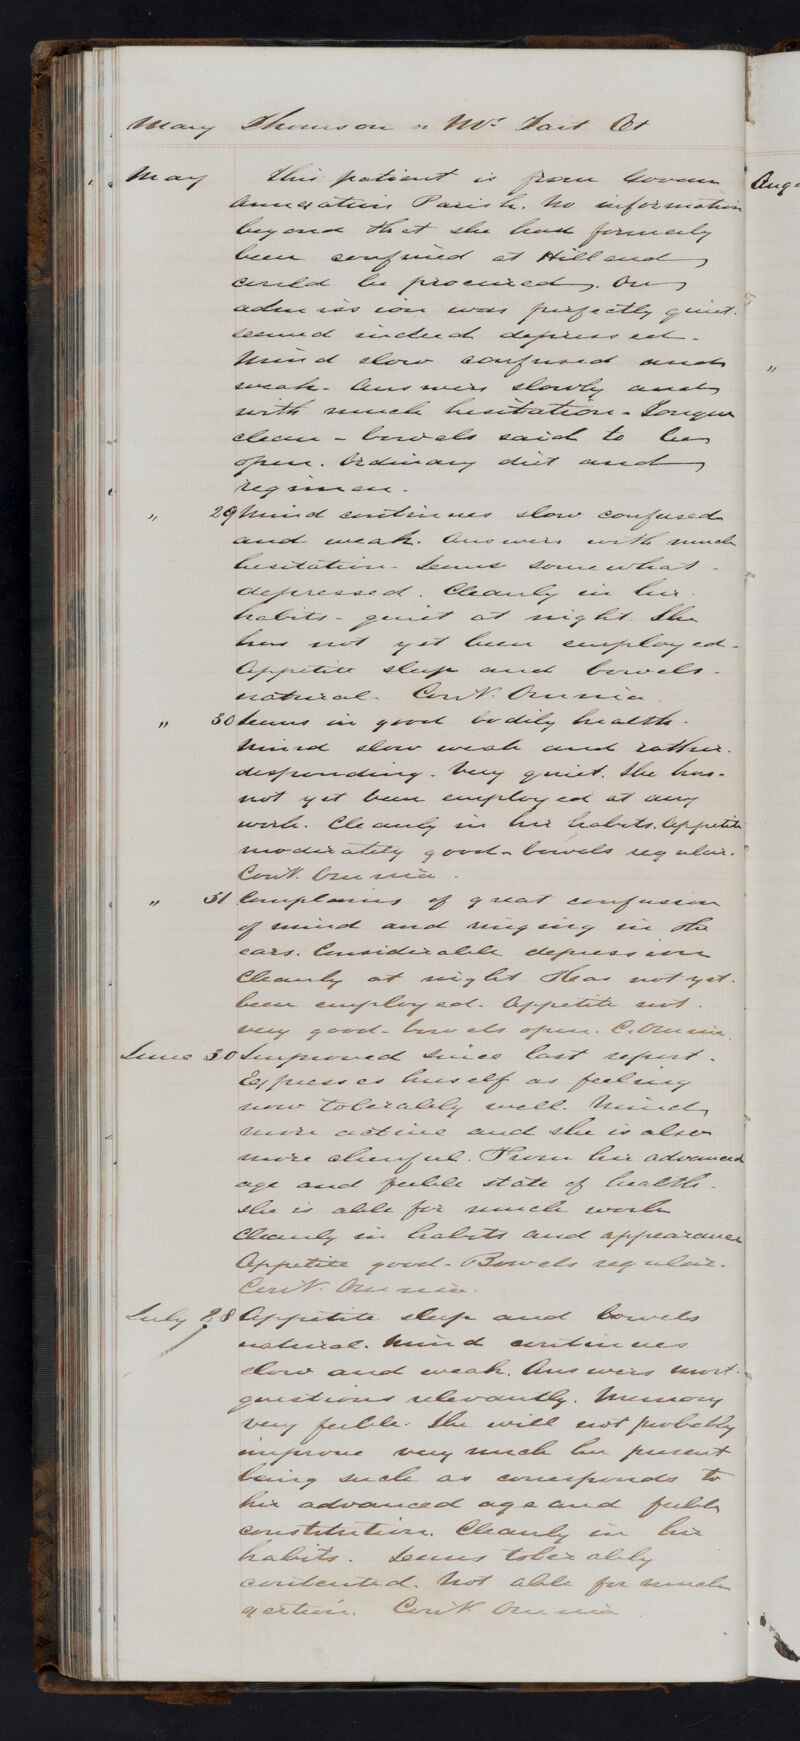 Mary Thomson or Mc Tart Ct
May This patient is from Govan
annexation Parish. No information
beyond that she had formerly
been confined at Hillend
could be procured. On
admission was perfectly quiet.
seemed indeed depressed.
Mind slow confused and
weak. Answers slowly and
with much hesitation - Tongue
clean - bowels said to be
open. Ordinary diet and
regimen.
" 29 Mind continues slow confused
and weak. Answers with much
hesitation. Seems somewhat
depressed. Cleanly in her
habits - quiet at night. She
has not yet been employed.
Appetite sleep and bowels
natural. Cont. Omnia.
" 30 Seems in good bodily health.
Mind slow weak and rather
desponding. Very quiet. She has
not yet been employed at any
work. Cleanly in her habits. Appetite
moderately good - bowels regular.
Cont. Omnia.
" 31 Complains of great confusion
of mind and ringing in the
ears. Considerable depression
Cleanly at night. Has not yet
been employed. Appetite not
very good - bowels open. C. Omnia.
June 30 Improved since last report.
Expresses herself as feeling
now tolerably well. Mind
more active and she is also
more cheerful. From her advanced
age and feeble state of health
she is able for much work
Cleanly in habits and appearance
Appetite good. Bowels regular.
Cont. Omnia.
July 28 Appetite sleep and bowels
natural. Mind continues
slow and weak. Answers most
questions relevantly. Memory
very feeble. She will not probably
improve very much her present
being such as corresponds to
her advanced age and feeble
constitution. Cleanly in her
habits. Seems tolerably
contented. Not able for much
exertion. Cont. Omnia
Aug
"